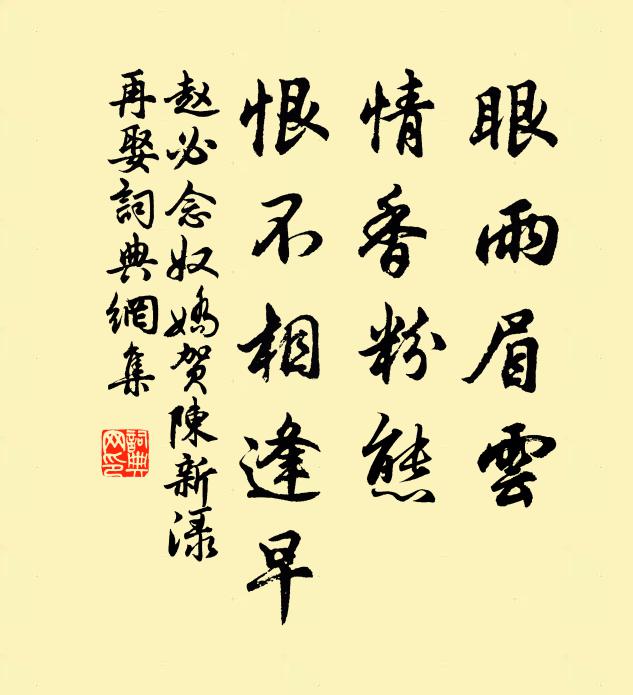 眼雨眉雲
情香粉態
恨不相逢早
赵必念奴嬌贺陳新渌
再娶詞典網集
詞典
网印